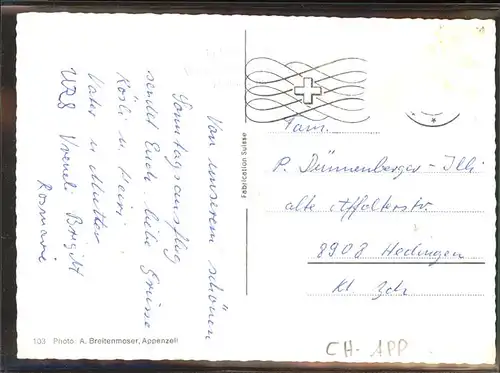 Von unserem schönen
Sonntagsausflug
sendet Euch liebe Grüsse
Rösli u. Heiri
Vater u Mutter
Urs Vreneli Brigit
Rosmarie
Fabrication Suisse
Fam.
P. Dünnenberger-Illi
alte Affolterstr.
8908 Hedingen
Kt Zch
103 Photo: A. Breitenmoser, Appenzell
CH-APP